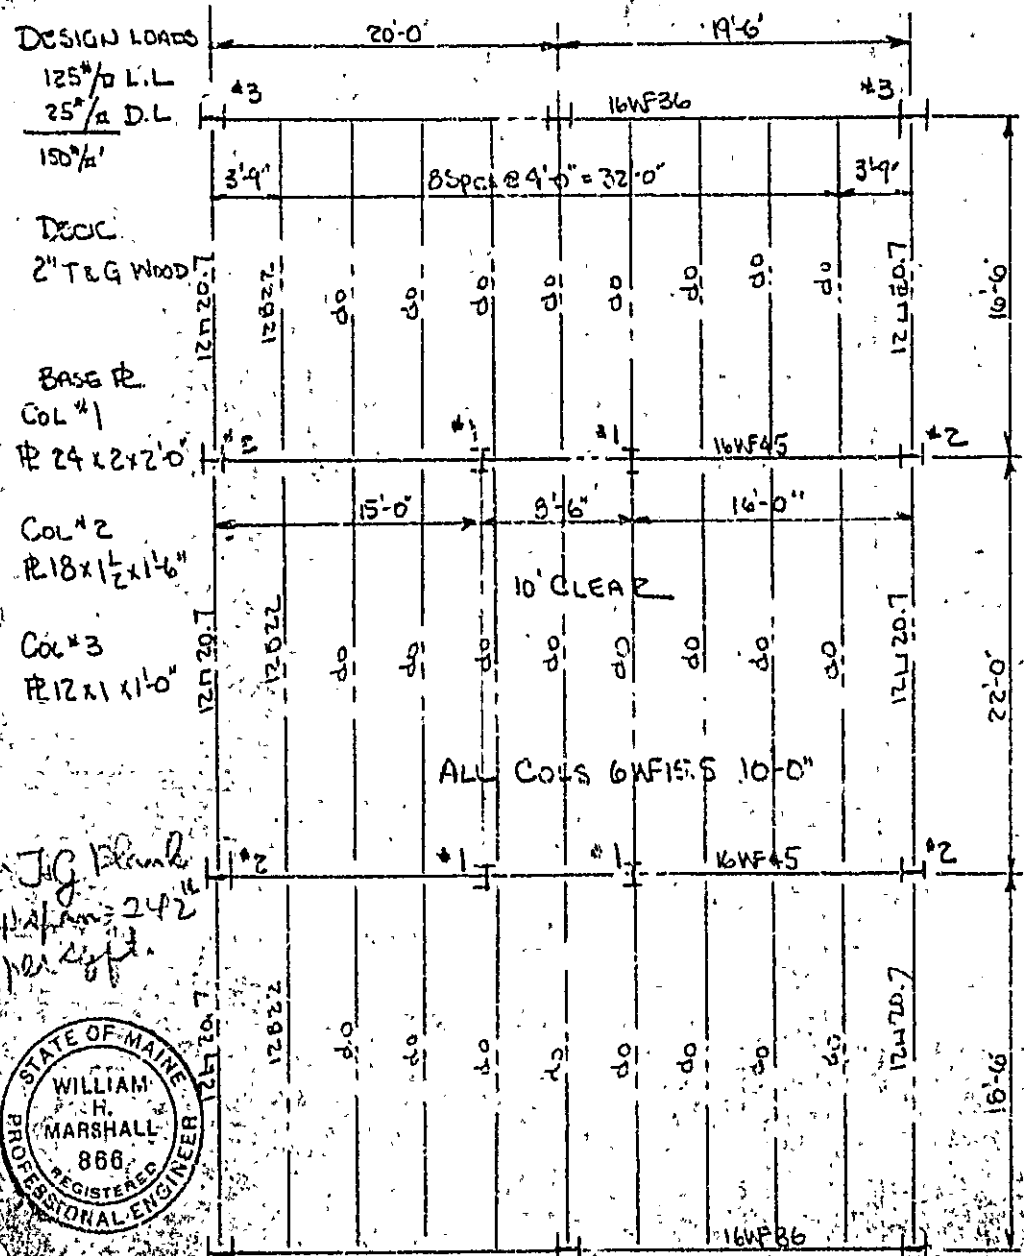 DESIGN LOADS
125#/□ L.L
25#/□ D.L
150#/□'
DECK
2" T & G WOOD
BASE PL
COL #1
PL 24 x 2 x 2'-0"
COL #2
PL 18 x 1 1/2 x 1'-6"
COL #3
PL 12 x 1 x 1'-0"
T&G Plank
242#
per sq ft.
STATE OF MAINE
WILLIAM
H.
MARSHALL
866
REGISTERED
PROFESSIONAL ENGINEER
20'-0" 19'-6"
#3 16WF36 #3
3'-9" 8 Spcs @ 4'-0" = 32'-0" 3'-9"
12⊔20.7 12B22 do do do do do do do do 12⊔20.7
16'-6"
#1 #1 16WF45 #2
15'-0" 8'-6" 16'-0"
10' CLEAR
12⊔20.7 12B22 do do do do do do do do 12⊔20.7
22'-0"
ALL COLS 6WF15.5 10'-0"
#2 #1 #1 16WF45 #2
12⊔20.7 12B22 do do do do do do do do 12⊔20.7
18'-6"
16WF36